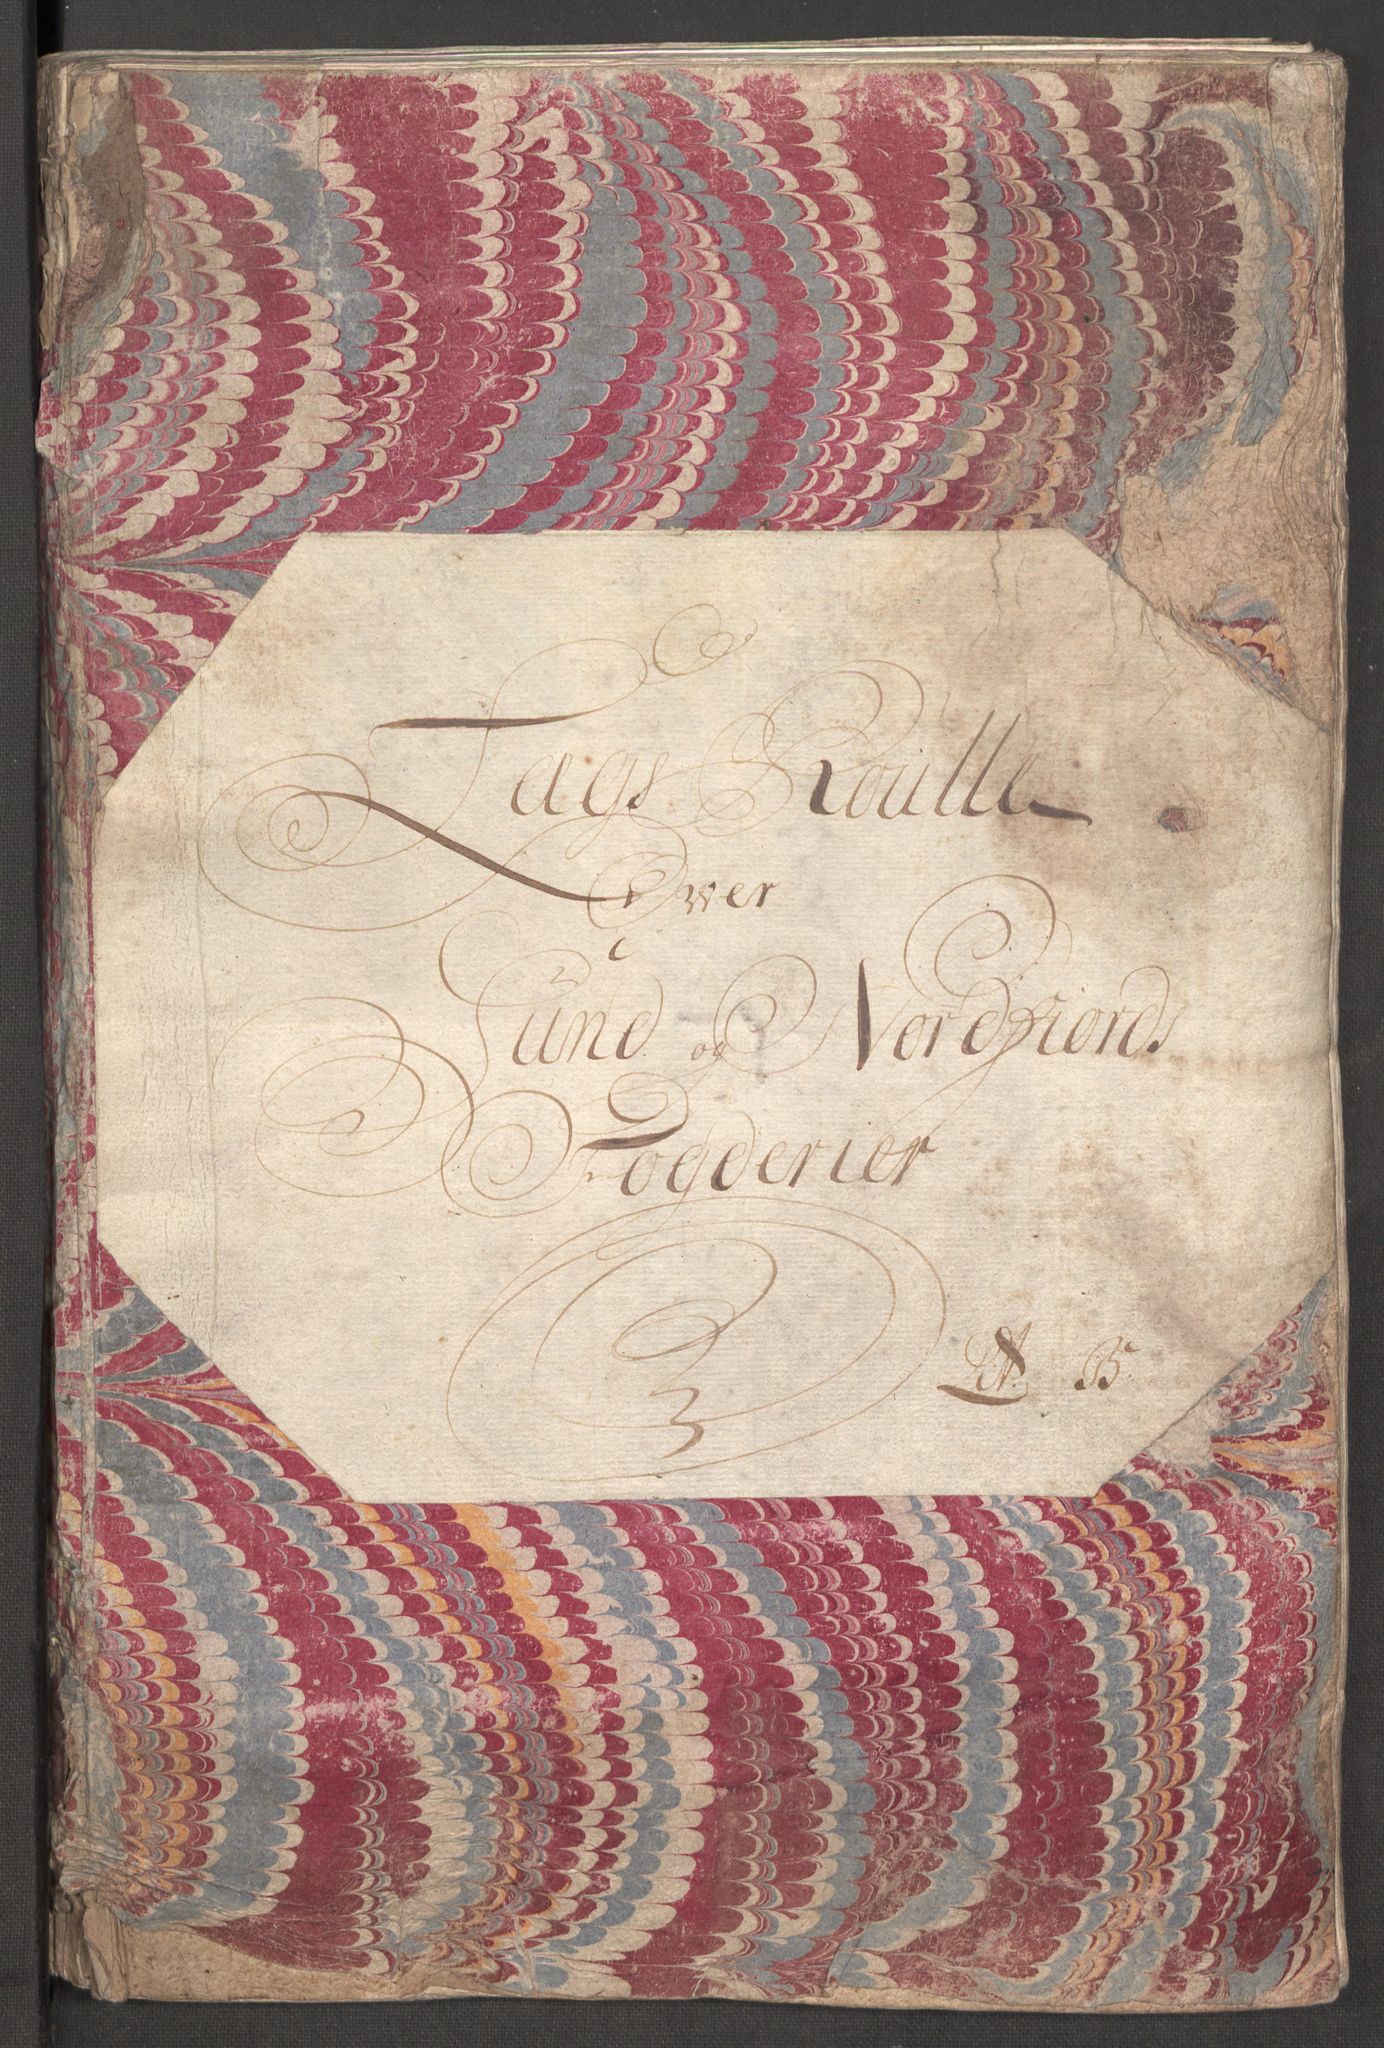 Lægs Roulle
Over
Sund og Nordfiords
Fogderier
Lit. B.